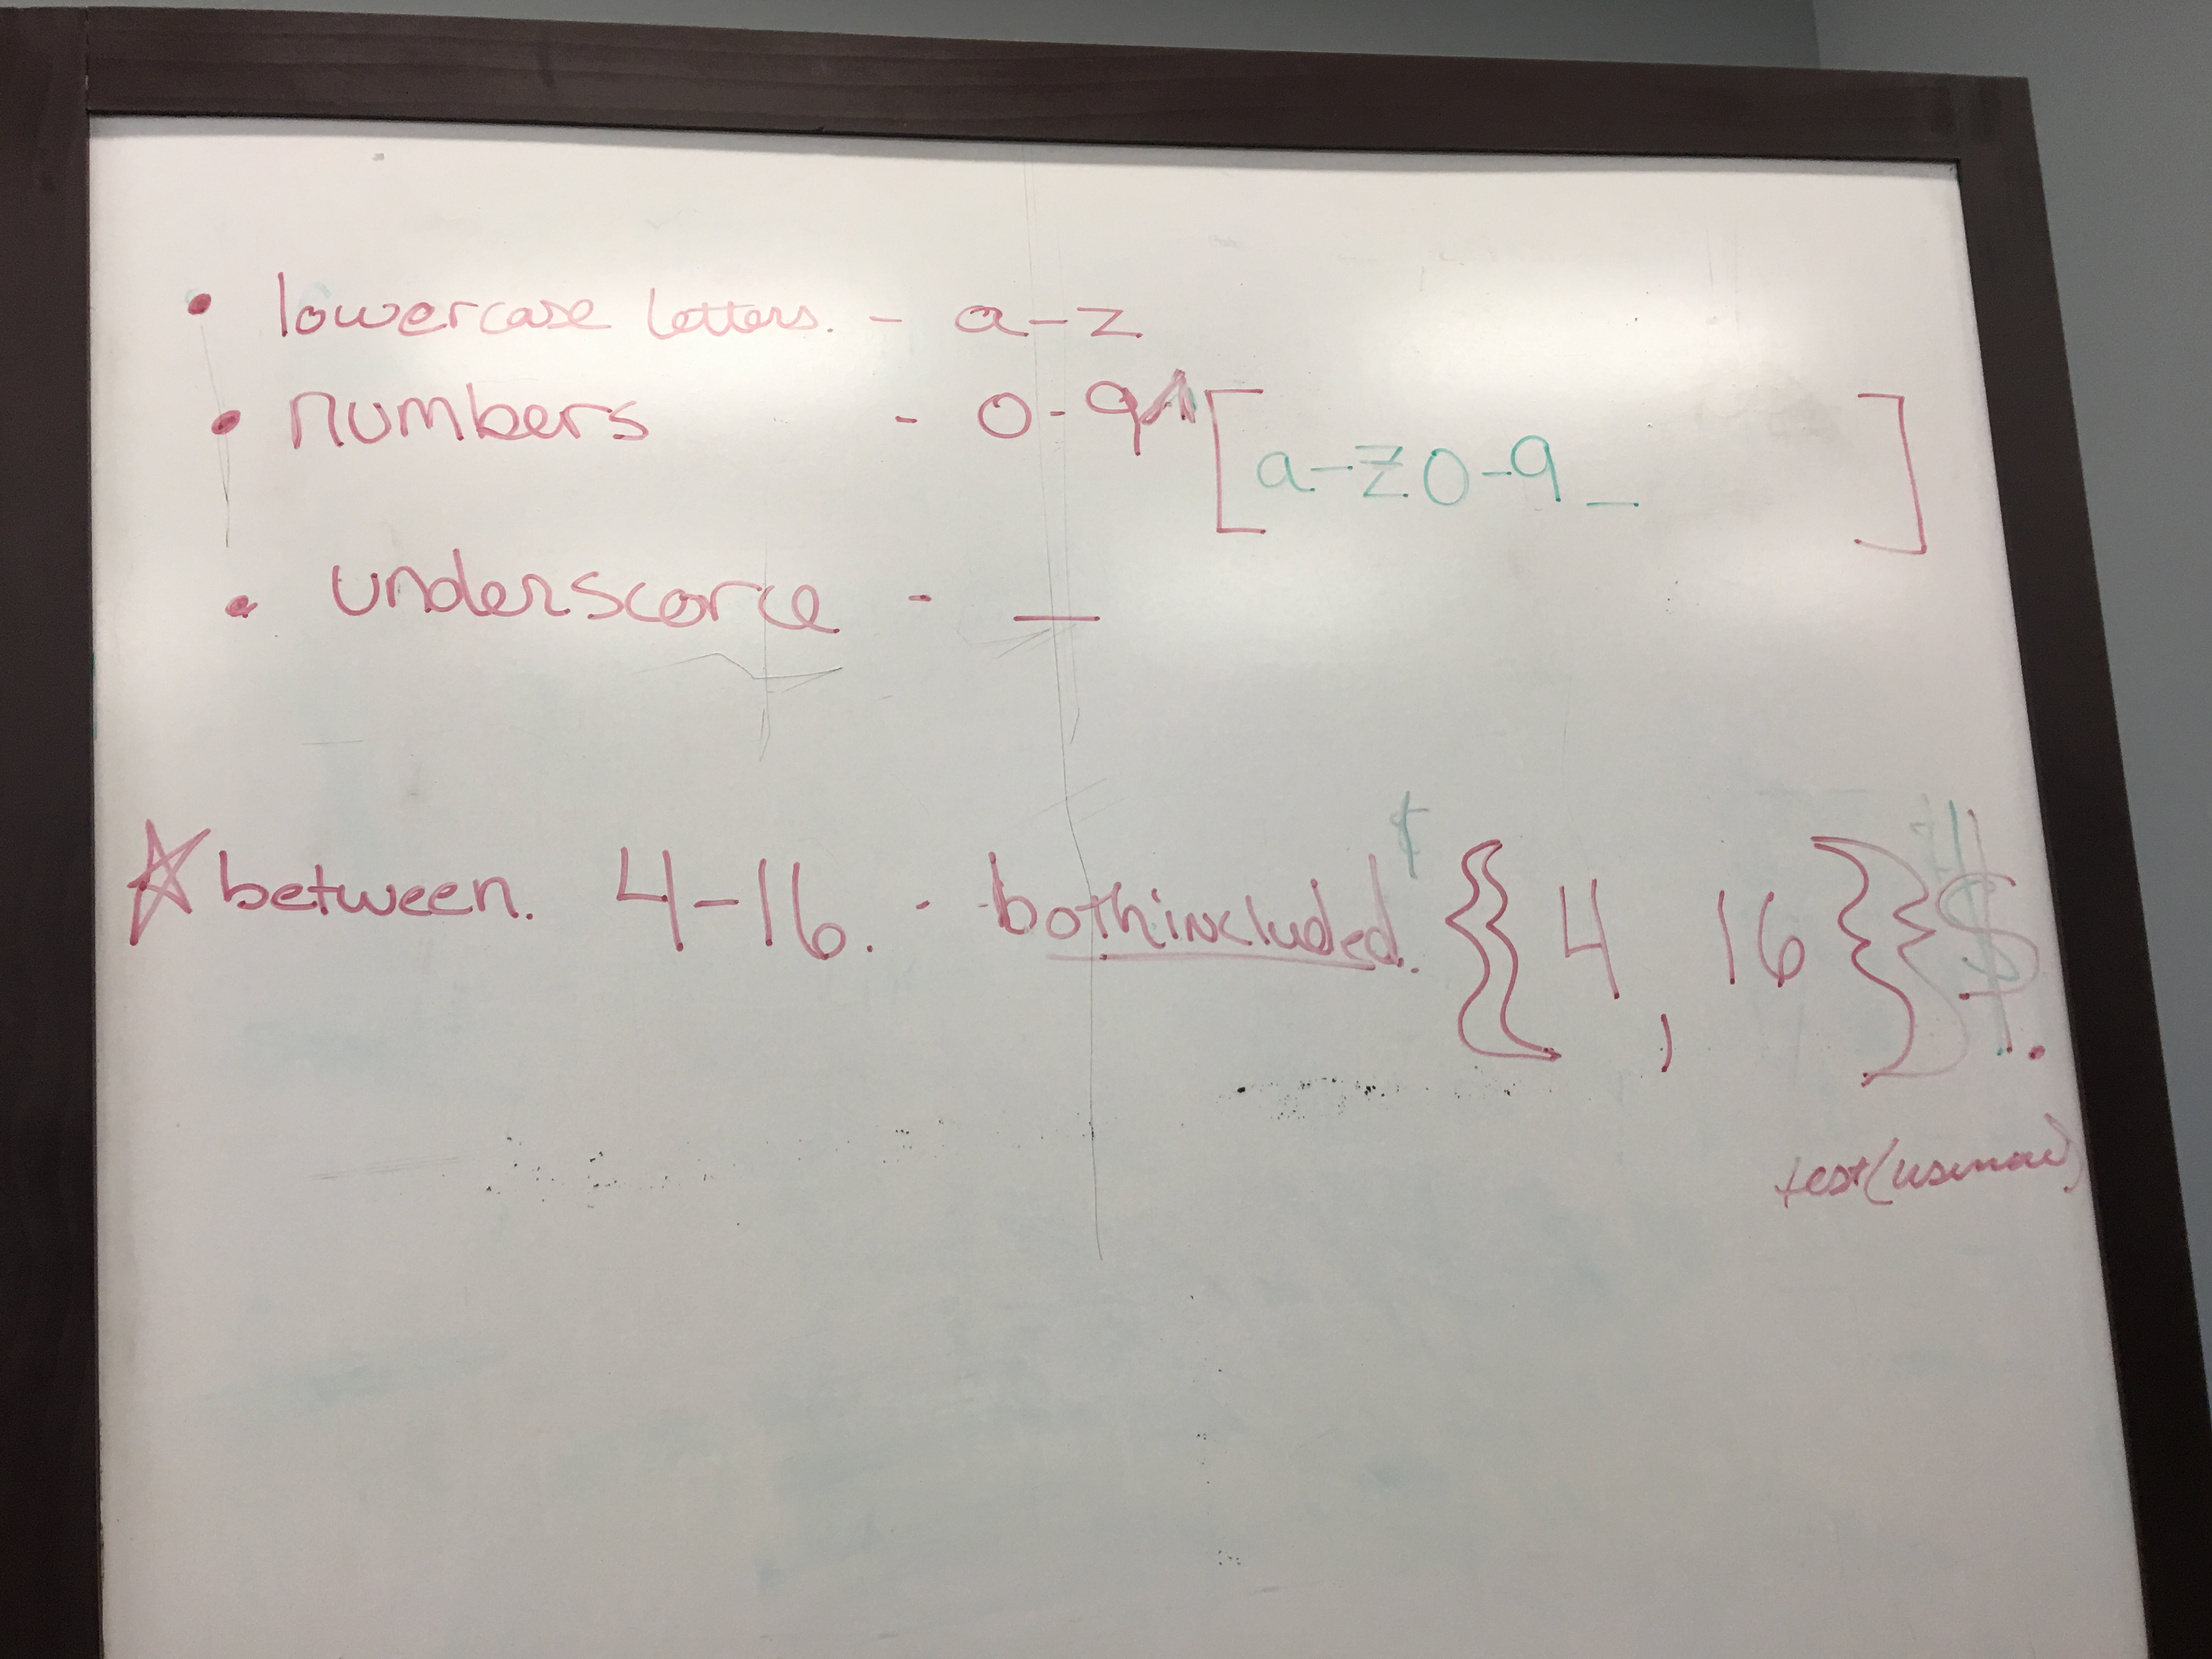 • lowercase letters. - a-z
• numbers - 0-9 ^ [a-z0-9_ ]
• underscorce - _
☆ between. 4-16. - both included. {{ 4 , 16 }} $.
test(